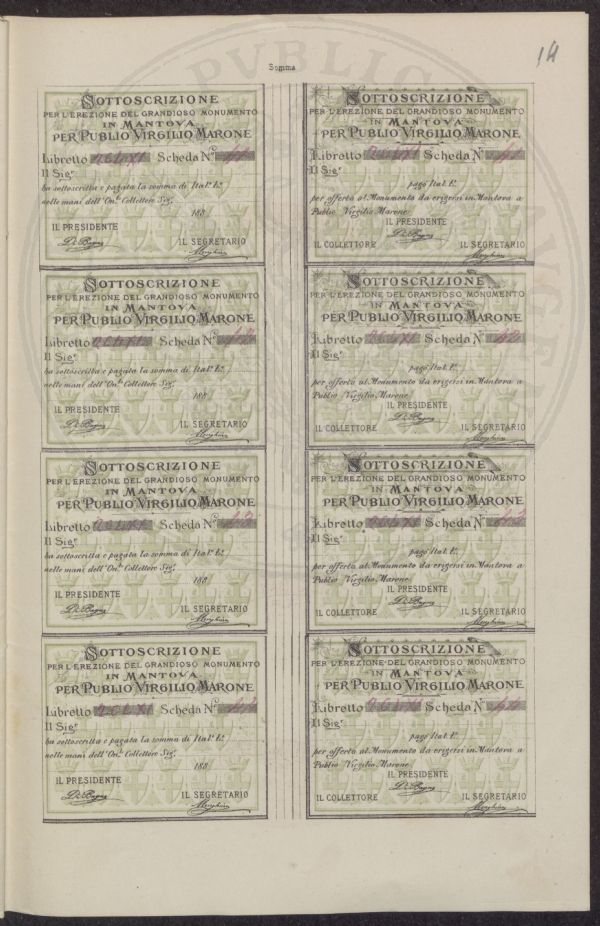 14
Somma
SOTTOSCRIZIONE
PER L'EREZIONE DEL GRANDIOSO MONUMENTO
IN MANTOVA
PER PUBLIO VIRGILIO MARONE
Libretto Scheda N.º 41
Il Sig.r
ha sottoscritta e pagata la somma di Ital.e L.
nelle mani dell'On.le Collettore Sig.r
188
IL PRESIDENTE
IL SEGRETARIO
SOTTOSCRIZIONE
PER L'EREZIONE DEL GRANDIOSO MONUMENTO
IN MANTOVA
PER PUBLIO VIRGILIO MARONE
Libretto Scheda N.º 41
Il Sig.r
pagò Ital. L.
per offerta al Monumento da erigersi in Mantova a
Publio Virgilio Marone
IL PRESIDENTE
IL COLLETTORE IL SEGRETARIO
SOTTOSCRIZIONE
PER L'EREZIONE DEL GRANDIOSO MONUMENTO
IN MANTOVA
PER PUBLIO VIRGILIO MARONE
Libretto Scheda N.º 42
Il Sig.r
ha sottoscritta e pagata la somma di Ital.e L.
nelle mani dell'On.le Collettore Sig.r
188
IL PRESIDENTE
IL SEGRETARIO
SOTTOSCRIZIONE
PER L'EREZIONE DEL GRANDIOSO MONUMENTO
IN MANTOVA
PER PUBLIO VIRGILIO MARONE
Libretto Scheda N.º 42
Il Sig.r
pagò Ital. L.
per offerta al Monumento da erigersi in Mantova a
Publio Virgilio Marone
IL PRESIDENTE
IL COLLETTORE IL SEGRETARIO
SOTTOSCRIZIONE
PER L'EREZIONE DEL GRANDIOSO MONUMENTO
IN MANTOVA
PER PUBLIO VIRGILIO MARONE
Libretto Scheda N.º 43
Il Sig.r
ha sottoscritta e pagata la somma di Ital.e L.
nelle mani dell'On.le Collettore Sig.r
188
IL PRESIDENTE
IL SEGRETARIO
SOTTOSCRIZIONE
PER L'EREZIONE DEL GRANDIOSO MONUMENTO
IN MANTOVA
PER PUBLIO VIRGILIO MARONE
Libretto Scheda N.º 43
Il Sig.r
pagò Ital. L.
per offerta al Monumento da erigersi in Mantova a
Publio Virgilio Marone
IL PRESIDENTE
IL COLLETTORE IL SEGRETARIO
SOTTOSCRIZIONE
PER L'EREZIONE DEL GRANDIOSO MONUMENTO
IN MANTOVA
PER PUBLIO VIRGILIO MARONE
Libretto Scheda N.º
Il Sig.r
ha sottoscritta e pagata la somma di Ital.e L.
nelle mani dell'On.le Collettore Sig.r
188
IL PRESIDENTE
IL SEGRETARIO
SOTTOSCRIZIONE
PER L'EREZIONE DEL GRANDIOSO MONUMENTO
IN MANTOVA
PER PUBLIO VIRGILIO MARONE
Libretto Scheda N.º 44
Il Sig.r
pagò Ital. L.
per offerta al Monumento da erigersi in Mantova a
Publio Virgilio Marone
IL PRESIDENTE
IL COLLETTORE IL SEGRETARIO